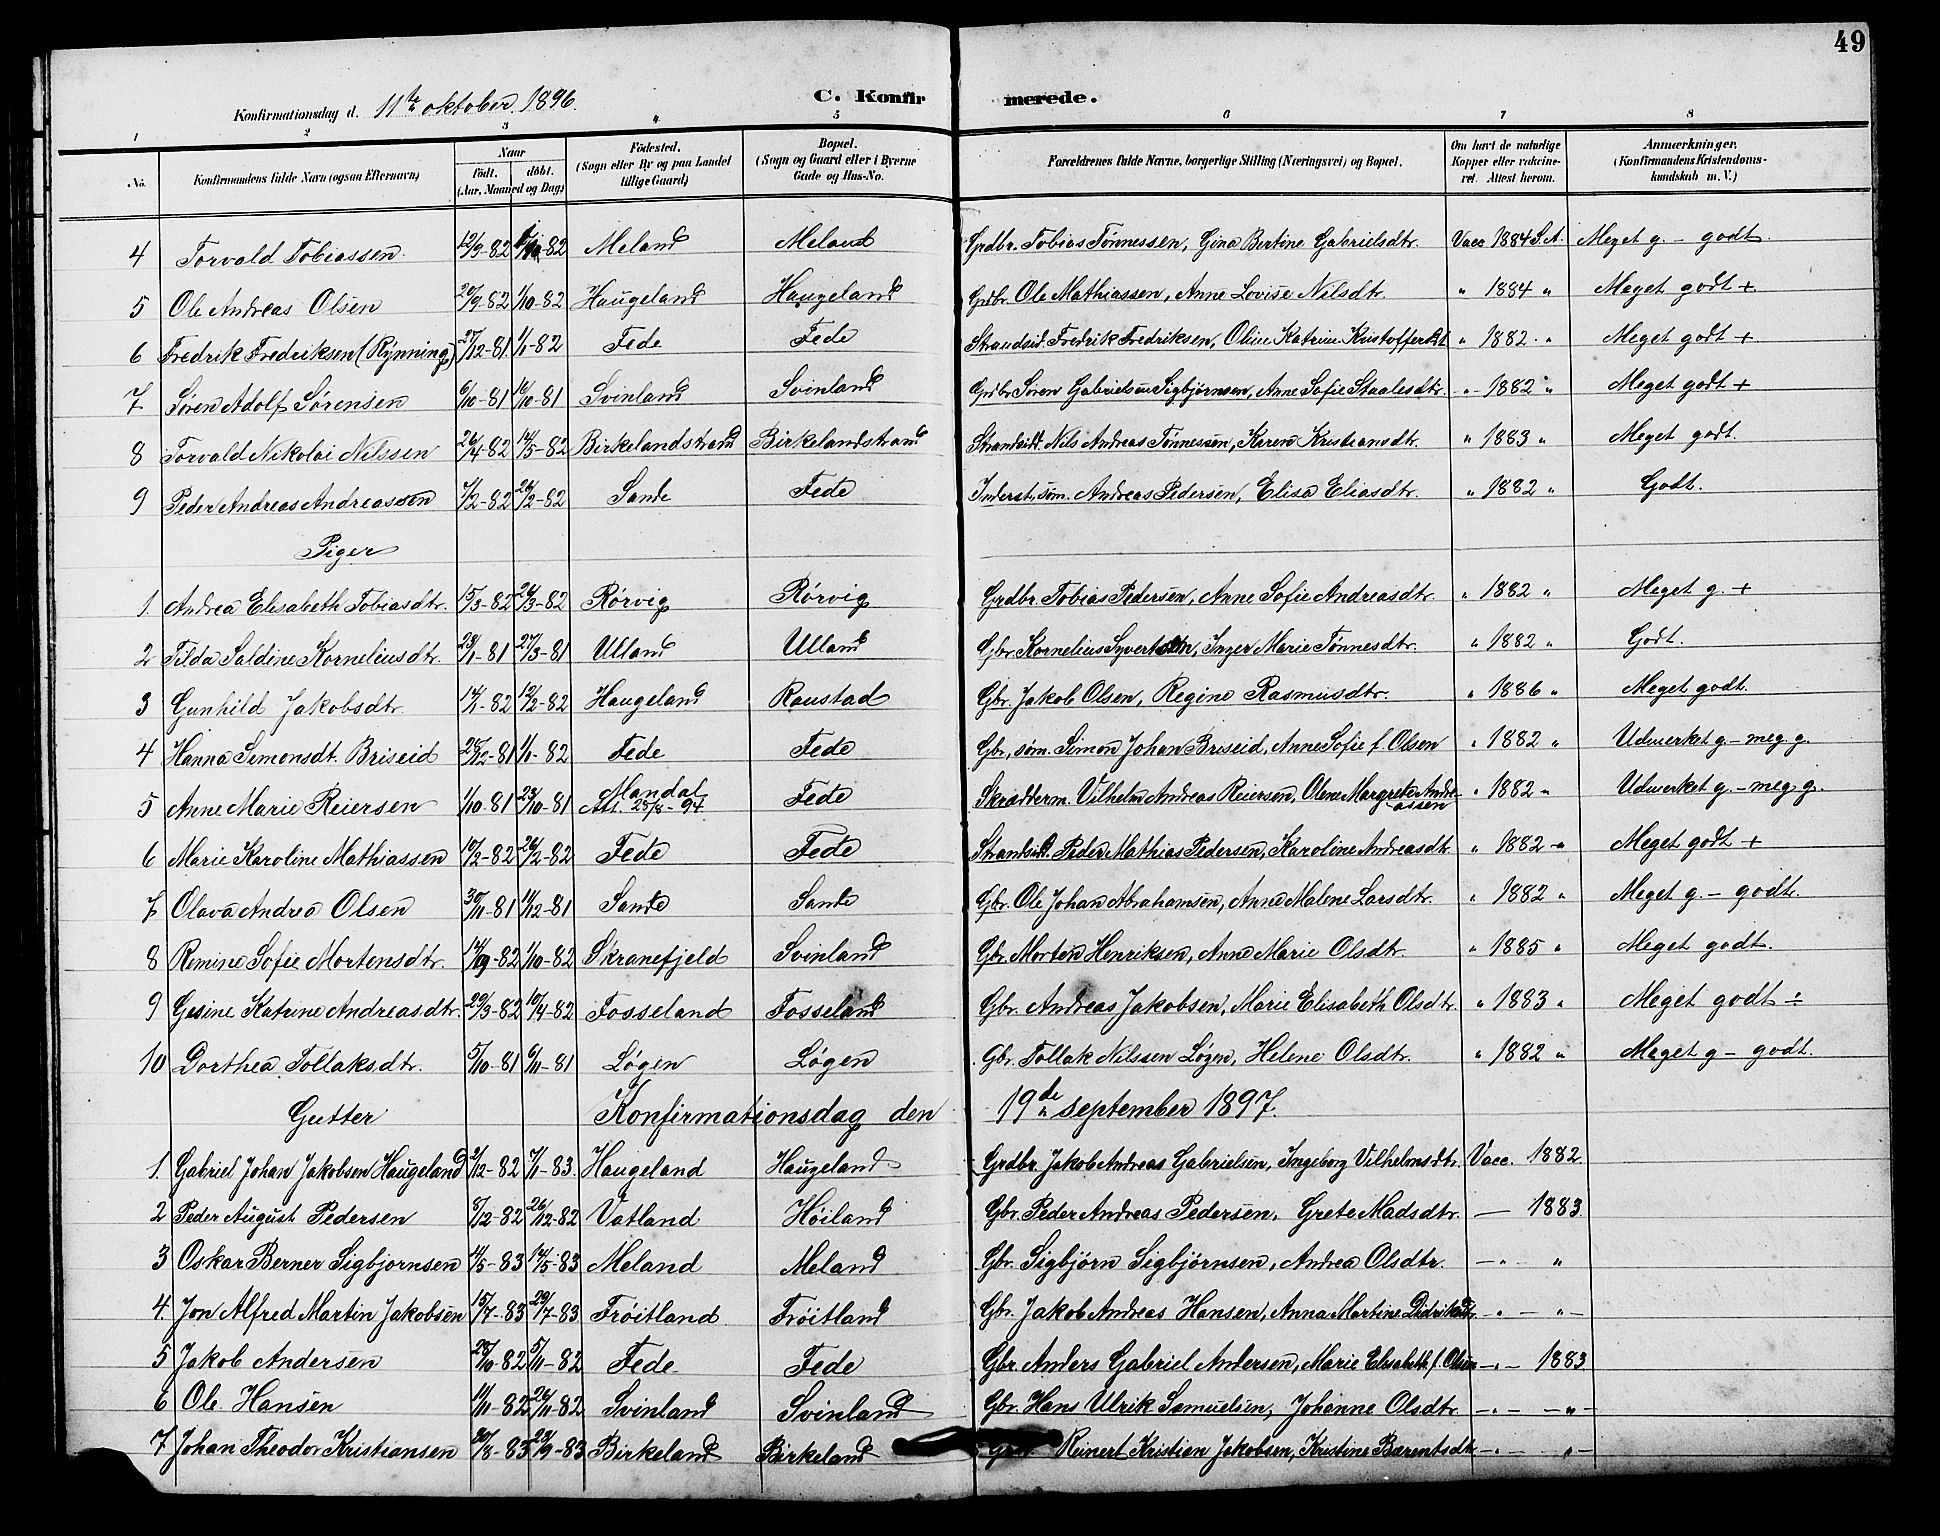 49
Konfirmationsdag d. 11te oktober 1896. C. Konfirmerede.
1 2 3 4 5 6 7 8
No. Konfirmandens fulde Navn (ogsaa Efternavn) Naar født. døbt. (Aar, Maaned og Dag) Fødested. (Sogn eller By og paa Landet tillige Gaard) Bopæl. (Sogn og Gaard eller i Byerne Gade og Hus-No. Forældrenes fulde Navne, borgerlige Stilling (Næringsvei) og Bopæl. Om havt de naturlige Kopper eller vaccineret. Attest herom. Anmærkninger. (Konfirmandens Kristendomskundskab m. V.)
4 Torvald Tobiassen 12/9-82 /10-82 Meland Meland Grdbr. Tobias Tønnessen, Gina Bertine Gabrielsdtr. Vacc 1884 S.A. Meget g. - godt
5 Ole Andreas Olsen 20/9-82 1/10-82 Haugeland Haugeland Grdbr. Ole Mathiassen, Anne Lovise Nilsdtr. " 1884 " Meget godt +
6 Fredrik Fredriksen (Rynning) 27/12-81 1/1-82 Fede Fede Strandsid. Fredrik Fredriksen, Oline Katrine Kristoffersdt " 1882 " Meget godt +
7 Søren Adolf Sørensen 6/10-81 16/10-81 Svinland Svinland Grdbr Søren Gabrielsen Sigbjørnsen, Anne Sofie Staalesdtr. " 1882 " Meget godt +
8 Torvald Nikolai Nilssen 26/4-82 14/5-82 Birkelandstrand Birkelandstrand Strandsidd. Nils Andreas Tønnessen, Karen Kristiansdtr. " 1883 " Meget godt.
9 Peder Andreas Andreassen 7/2-82 26/2-82 Sande Fede Inderst, søm. Andreas Pedersen, Elisa Eliasdtr. " 1882 " Godt.
Piger
1. Andrea Elisabeth Tobiasdtr. 15/3-82 26/3-82 Rørvig Rørvig Grdbr. Tobias Pedersen, Anne Sofie Andreasdtr. " 1882 " Meget g. +
2 Tilda Saldine Korneliusdtr. 23/1-81 27/3-81 Ulland Ulland Gbr. Kornelius Syvertsen, Inger Marie Tønnesdtr. " 1882 " Godt.
3 Gunhild Jakobsdtr. 14/1-82 12/2-82 Haugeland Raustad Gbr. Jakob Olsen, Regine Rasmusdtr. " 1886 " Meget godt.
4 Hanna Simonsdt. Briseid 25/12-81 1/1-82 Fede Fede Gbr., søm. Simon Johan Briseid, Anne Sofie f. Olsen " 1882 " Udmerket g. - meg g.
5 Anne Marie Reiersen 1/10-81 23/10-81 Mandal Att. 25/8-94 Fede Skrædderm. Vilhelm Andreas Reiersen, Olene Margrete Andreassen " 1882 " Udmerket g. - meg g.
6 Marie Karoline Mathiassen 10/2-82 26/2-82 Fede Fede Strandsid. Peder Mathias Pedersen, Karoline Andreasdtr " 1882 " Meget godt +
7 Olava Andrea Olsen 30/11-81 11/12-81 Sande Sande Gbr. Ole Johan Abrahamsen, Anne Malene Larsdtr. " 1882 " Meget g. - godt.
8 Remine Sofie Mortensdtr. 14/9-82 1/10-82 Skranefjeld Svinland Gbr. Morten Henriksen, Anne Marie Olsdtr. " 1885 " Meget godt.
9 Gesine Katrine Andreasdtr. 29/3-82 10/4-82 Fosseland Fosseland Gbr. Andreas Jakobsen, Marie Elisabeth Olsdtr. " 1883 " Meget godt ÷
10 Dorthea Tollaksdtr. 5/10-81 6/11-81 Løgen Løgen Gbr. Tollak Nilssen Løgen, Helene Olsdtr. " 1882 " Meget g - godt.
Gutter Konfirmationsdag den 19de september 1897.
1. Gabriel Johan Jakobsen Haugeland 2/12-82 7/1-83. Haugeland Haugeland Grdbr. Jakob Andreas Gabrielsen, Ingeborg Vilhelmsdtr. Vacc. 1882.
2 Peder August Pedersen 8/12-82 26/12-82 Vatland Høiland Gbr. Peder Andreas Pedersen, Grete Madsdtr. — 1883
3 Oskar Berner Sigbjørnsen 4/5-83 14/5-83 Meland Meland Gbr. Sigbjørn Sigbjørnsen, Andrea Olsdtr. - " - "
4. Jon Alfred Martin Jakobsen 15/7-83 29/7-83 Frøitland Frøitland Gbr. Jakob Andreas Hansen, Anna Martine Didriksdtr - " - " -
5 Jakob Andersen 28/10-82 5/11-82 Fede Fede Gbr. Anders Gabriel Andersen, Marie Elisabeth f. Olsen - " - 1883
6 Ole Hansen 11/11-82 26/11-82 Svinland Svinland Gbr. Hans Ulrik Samuelsen, Johanne Olsdtr - " - " -
7 Johan Theodor Kristiansen 30/8-83 23/9-83 Birkeland Birkeland Reinert Kristian Jakobsen, Kristine Berentsdtr - " - " -